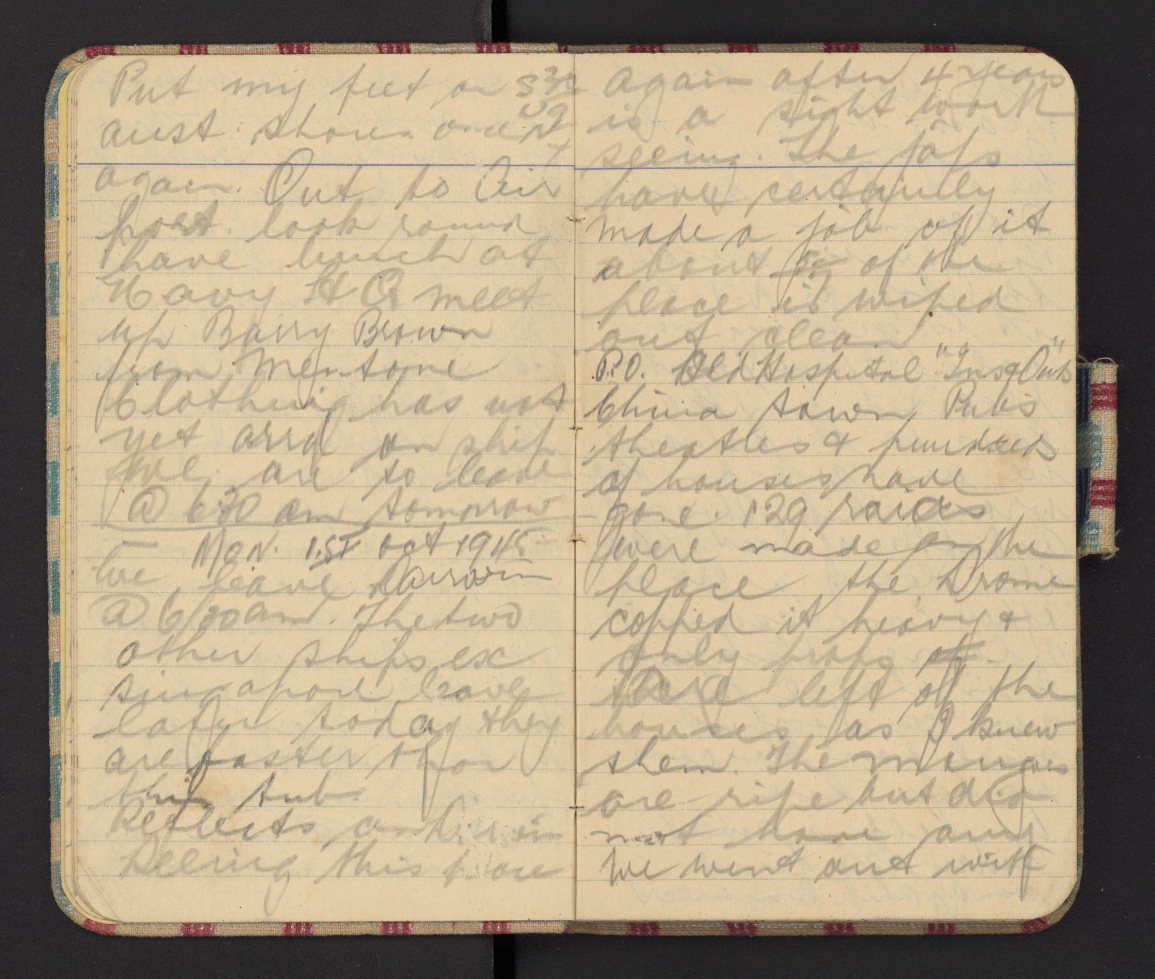 Put my feet on
aust. shores once
again. Out to Air
port. look round
have lunch at
Navy H Q meet
up Barry Brown
from Mentone
Clothing has not
yet arrd on ship
We are to leave
@ 630 am tomorrow
— MON. 1ST Oct 1945
We leave Darwin
@ 6/30 am. The two
other ships ex
Singapore leave
later today & they
are faster than
this tub.
Reflects on Darwin
Seeing this place
again after 4 years
is a sight worth
seeing. The japs
have certainly
made a job of it
about of the
place is wiped
out clean
P.O. Old Hospital "Ins & Outs"
China town Pubs
theatres & hundreds
of houses have
gone. 129 raids
were made on the
place, the Drome
copped it heavy &
only props
are left of the
houses as I knew
them. The mangoes
are ripe but did
not have any
We went out with